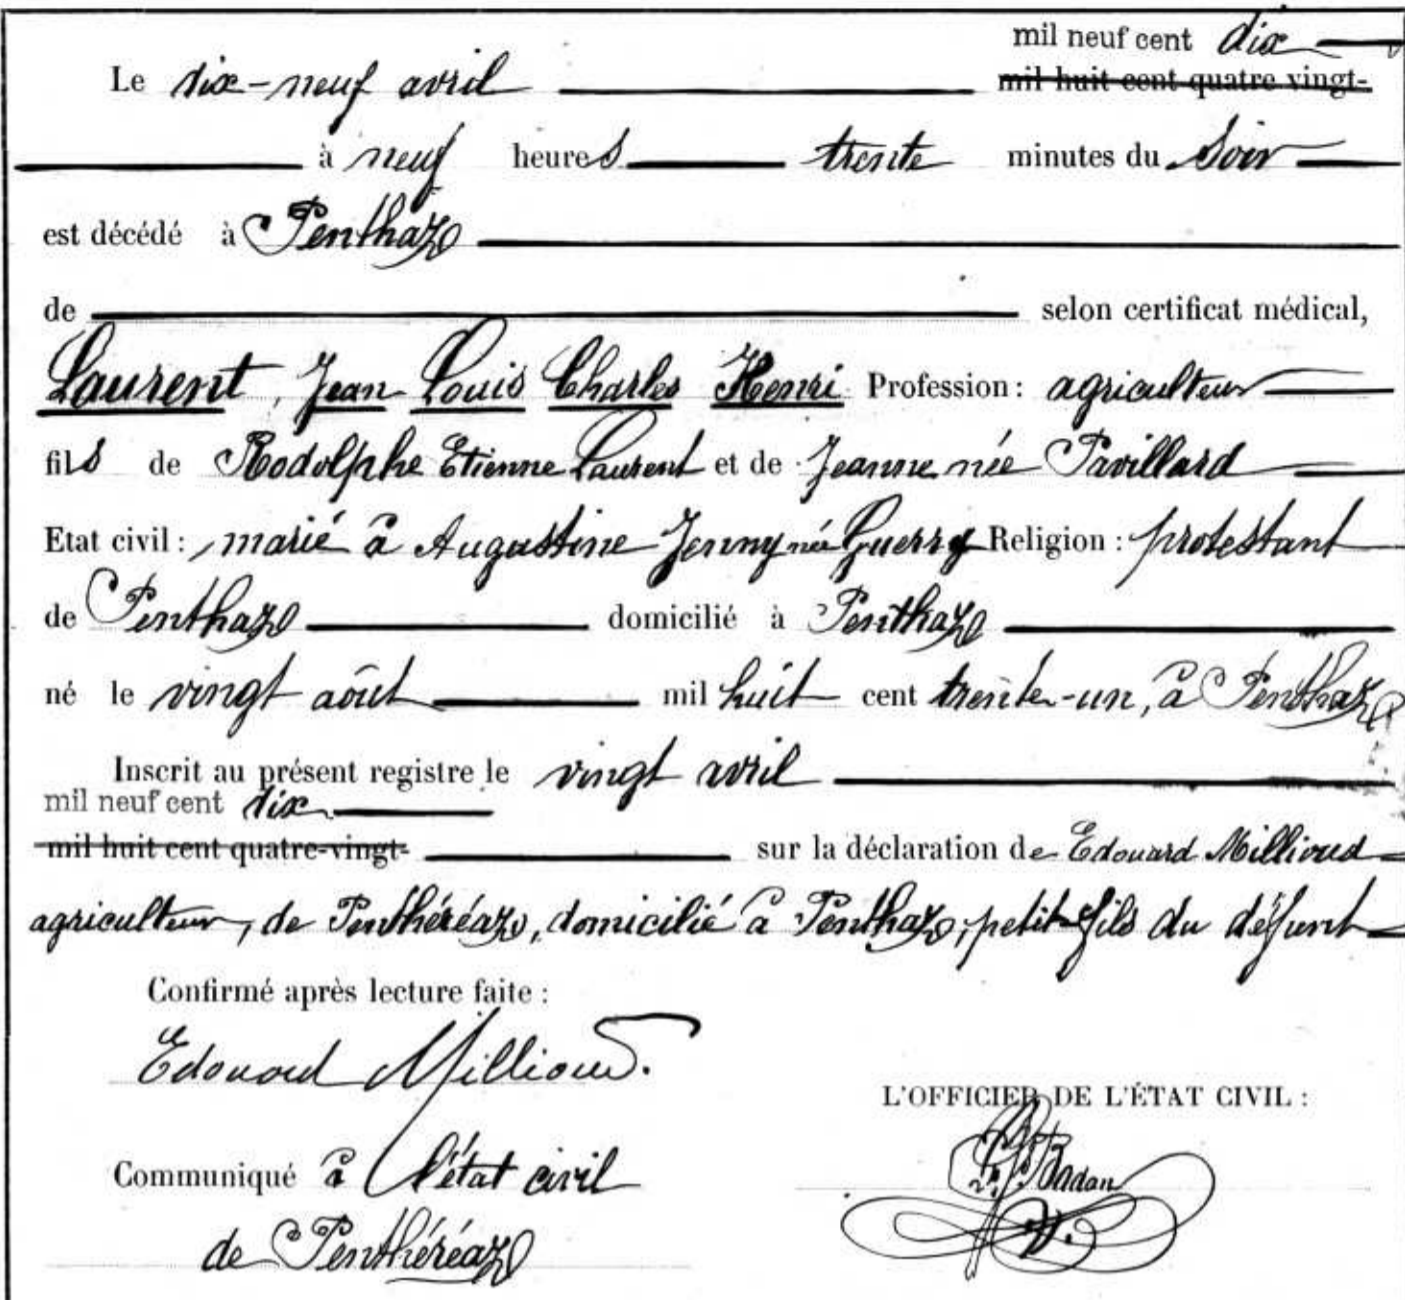 mil neuf cent dix
Le dix-neuf avril mil huit cent quatre vingt-
à neuf heures trente minutes du soir
est décédé à Penthaz
de selon certificat médical,
Laurent, Jean Louis Charles Henri Profession: agriculteur
fils de Rodolphe Etienne Laurent et de Jeanne née Pavillard
Etat civil: marié à Augustine Jenny née Guerry Religion: protestant
de Penthaz domicilié à Penthaz
né le vingt août mil huit cent trente-un, à Penthaz
Inscrit au présent registre le vingt avril
mil neuf cent dix
mil huit cent quatre-vingt- sur la déclaration de Edouard Millioud
agriculteur, de Penthéréaz, domicilié à Penthaz, petit-fils du défunt
Confirmé après lecture faite:
Edouard Millioud.
L'OFFICIER DE L'ÉTAT CIVIL:
Badan
Communiqué à l'état civil
de Penthéréaz